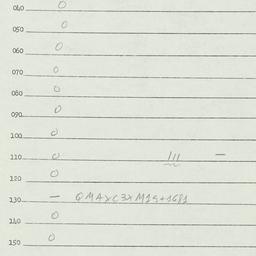 040 0
050 0
060 0
070 0
080 0
090 0
100 0
110 0 111 —
120 0
130 —
140 0
150 0